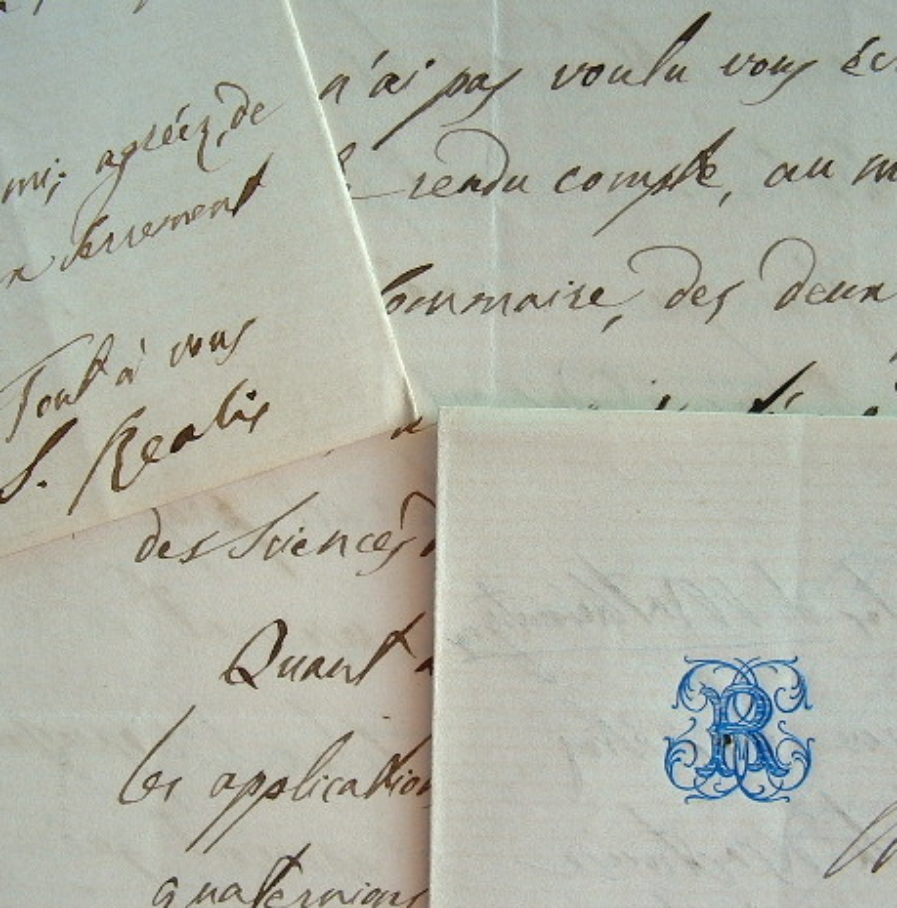 mi; agréez, de
serrement
Tout à vous
S. Realis
n'ai pas voulu vous éc
rendu compte, au m
sommaire, des deux
des Sciences
Quant a
les application
quaternions
R